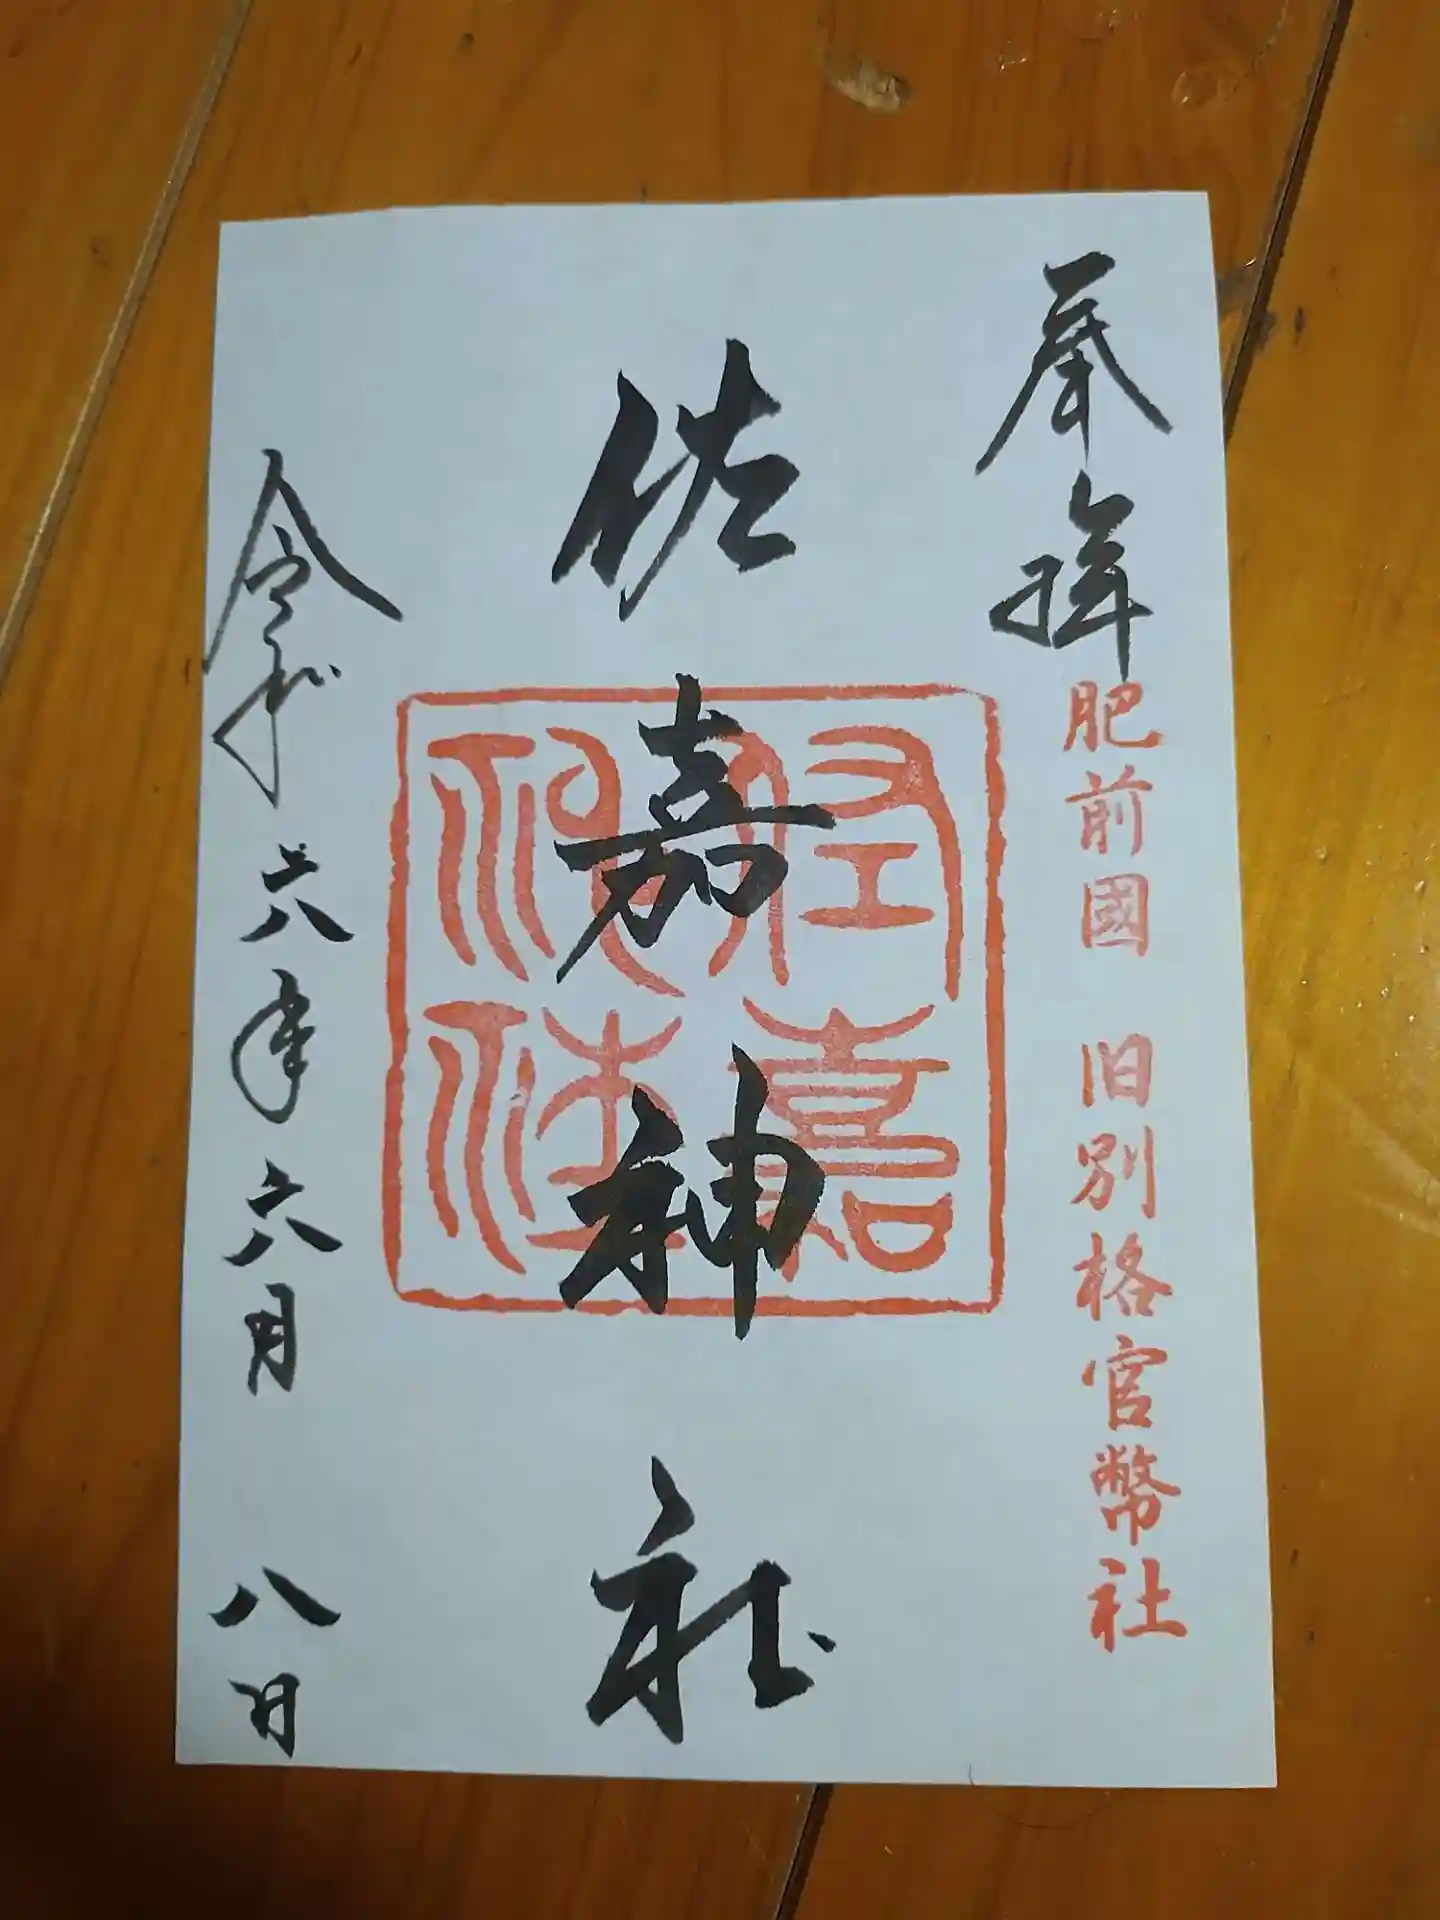 奉拝
肥前國 旧別格官幣社
佐嘉神社
佐嘉神社
令和六年六月八日